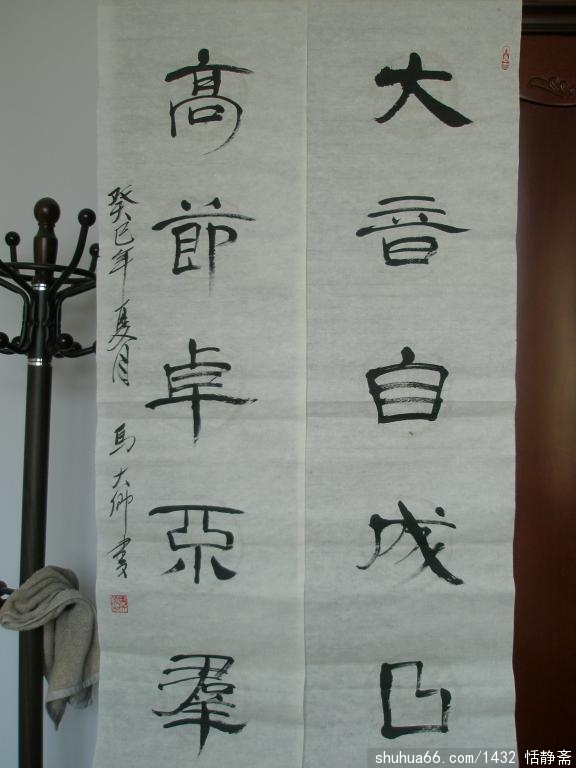 大音自成曲
高節卓不羣
癸巳年夏月 馬大卿書
shuhua66.com/1432 恬静斋